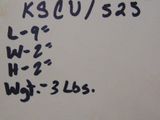 KSCU/S25
L-9"
W-2"
H-2"
Wgt.-3Lbs.